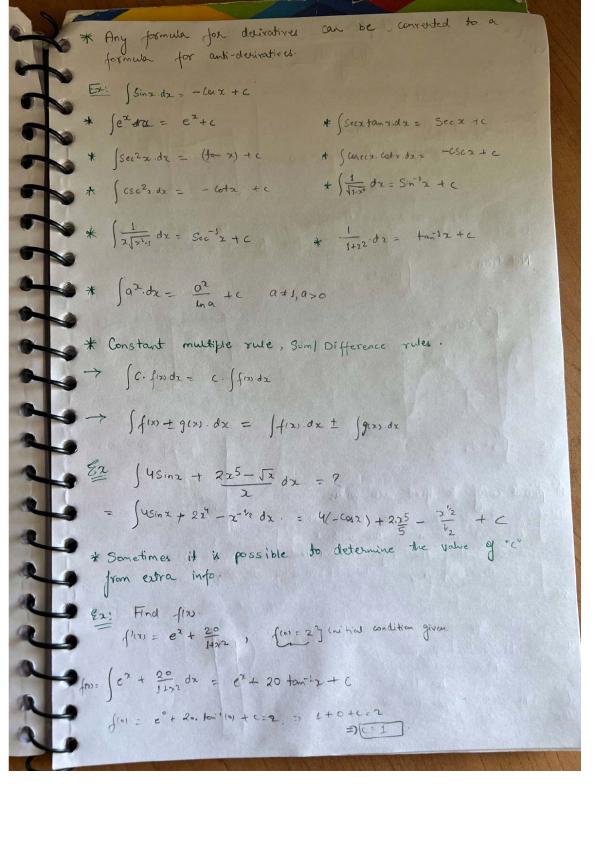 * Any formula for derivatives can be converted to a
formula for anti-derivatives.
Ex: ∫ Sinx dx = -Cosx + c
* ∫ eˣ dx = eˣ + c
* ∫ Secx tanx.dx = Secx + c
* ∫ Sec²x dx = (tan x) + c
* ∫ Cosecx.cotx dx = -cscx + c
* ∫ csc²x dx = - cotx + c
* ∫ 1/√(1-x²) dx = Sin⁻¹x + c
* ∫ 1/(x√(x²-1)) dx = Sec⁻¹x + c
* 1/(1+x²) .dx = tan⁻¹x + c
* ∫ aˣ.dx = aˣ/ln a + c a≠1, a>0
* Constant multiple rule, Sum/Difference rules.
→ ∫ C. f(x) dx = C. ∫ f(x) dx
→ ∫ f(x) ± g(x). dx = ∫ f(x). dx ± ∫ g(x). dx
Ex ∫ 4Sinx + (2x⁵ - √x)/x dx = ?
= ∫ 4Sinx + 2x⁴ - x^(-1/2) dx. = 4(-Cosx) + 2.x⁵/5 - x^(1/2)/(1/2) + C
* Sometimes it is possible to determine the value of "C"
from extra info.
Ex: Find f(x).
f'(x) = eˣ + 20/(1+x²) , f(0) = 2 } initial condition given
f(x) = ∫ eˣ + 20/(1+x²) dx = eˣ + 20 tan⁻¹x + C
f(0) = e⁰ + 20. tan⁻¹(0) + c = 2. ⇒ 1+0+c = 2
⇒ C = 1